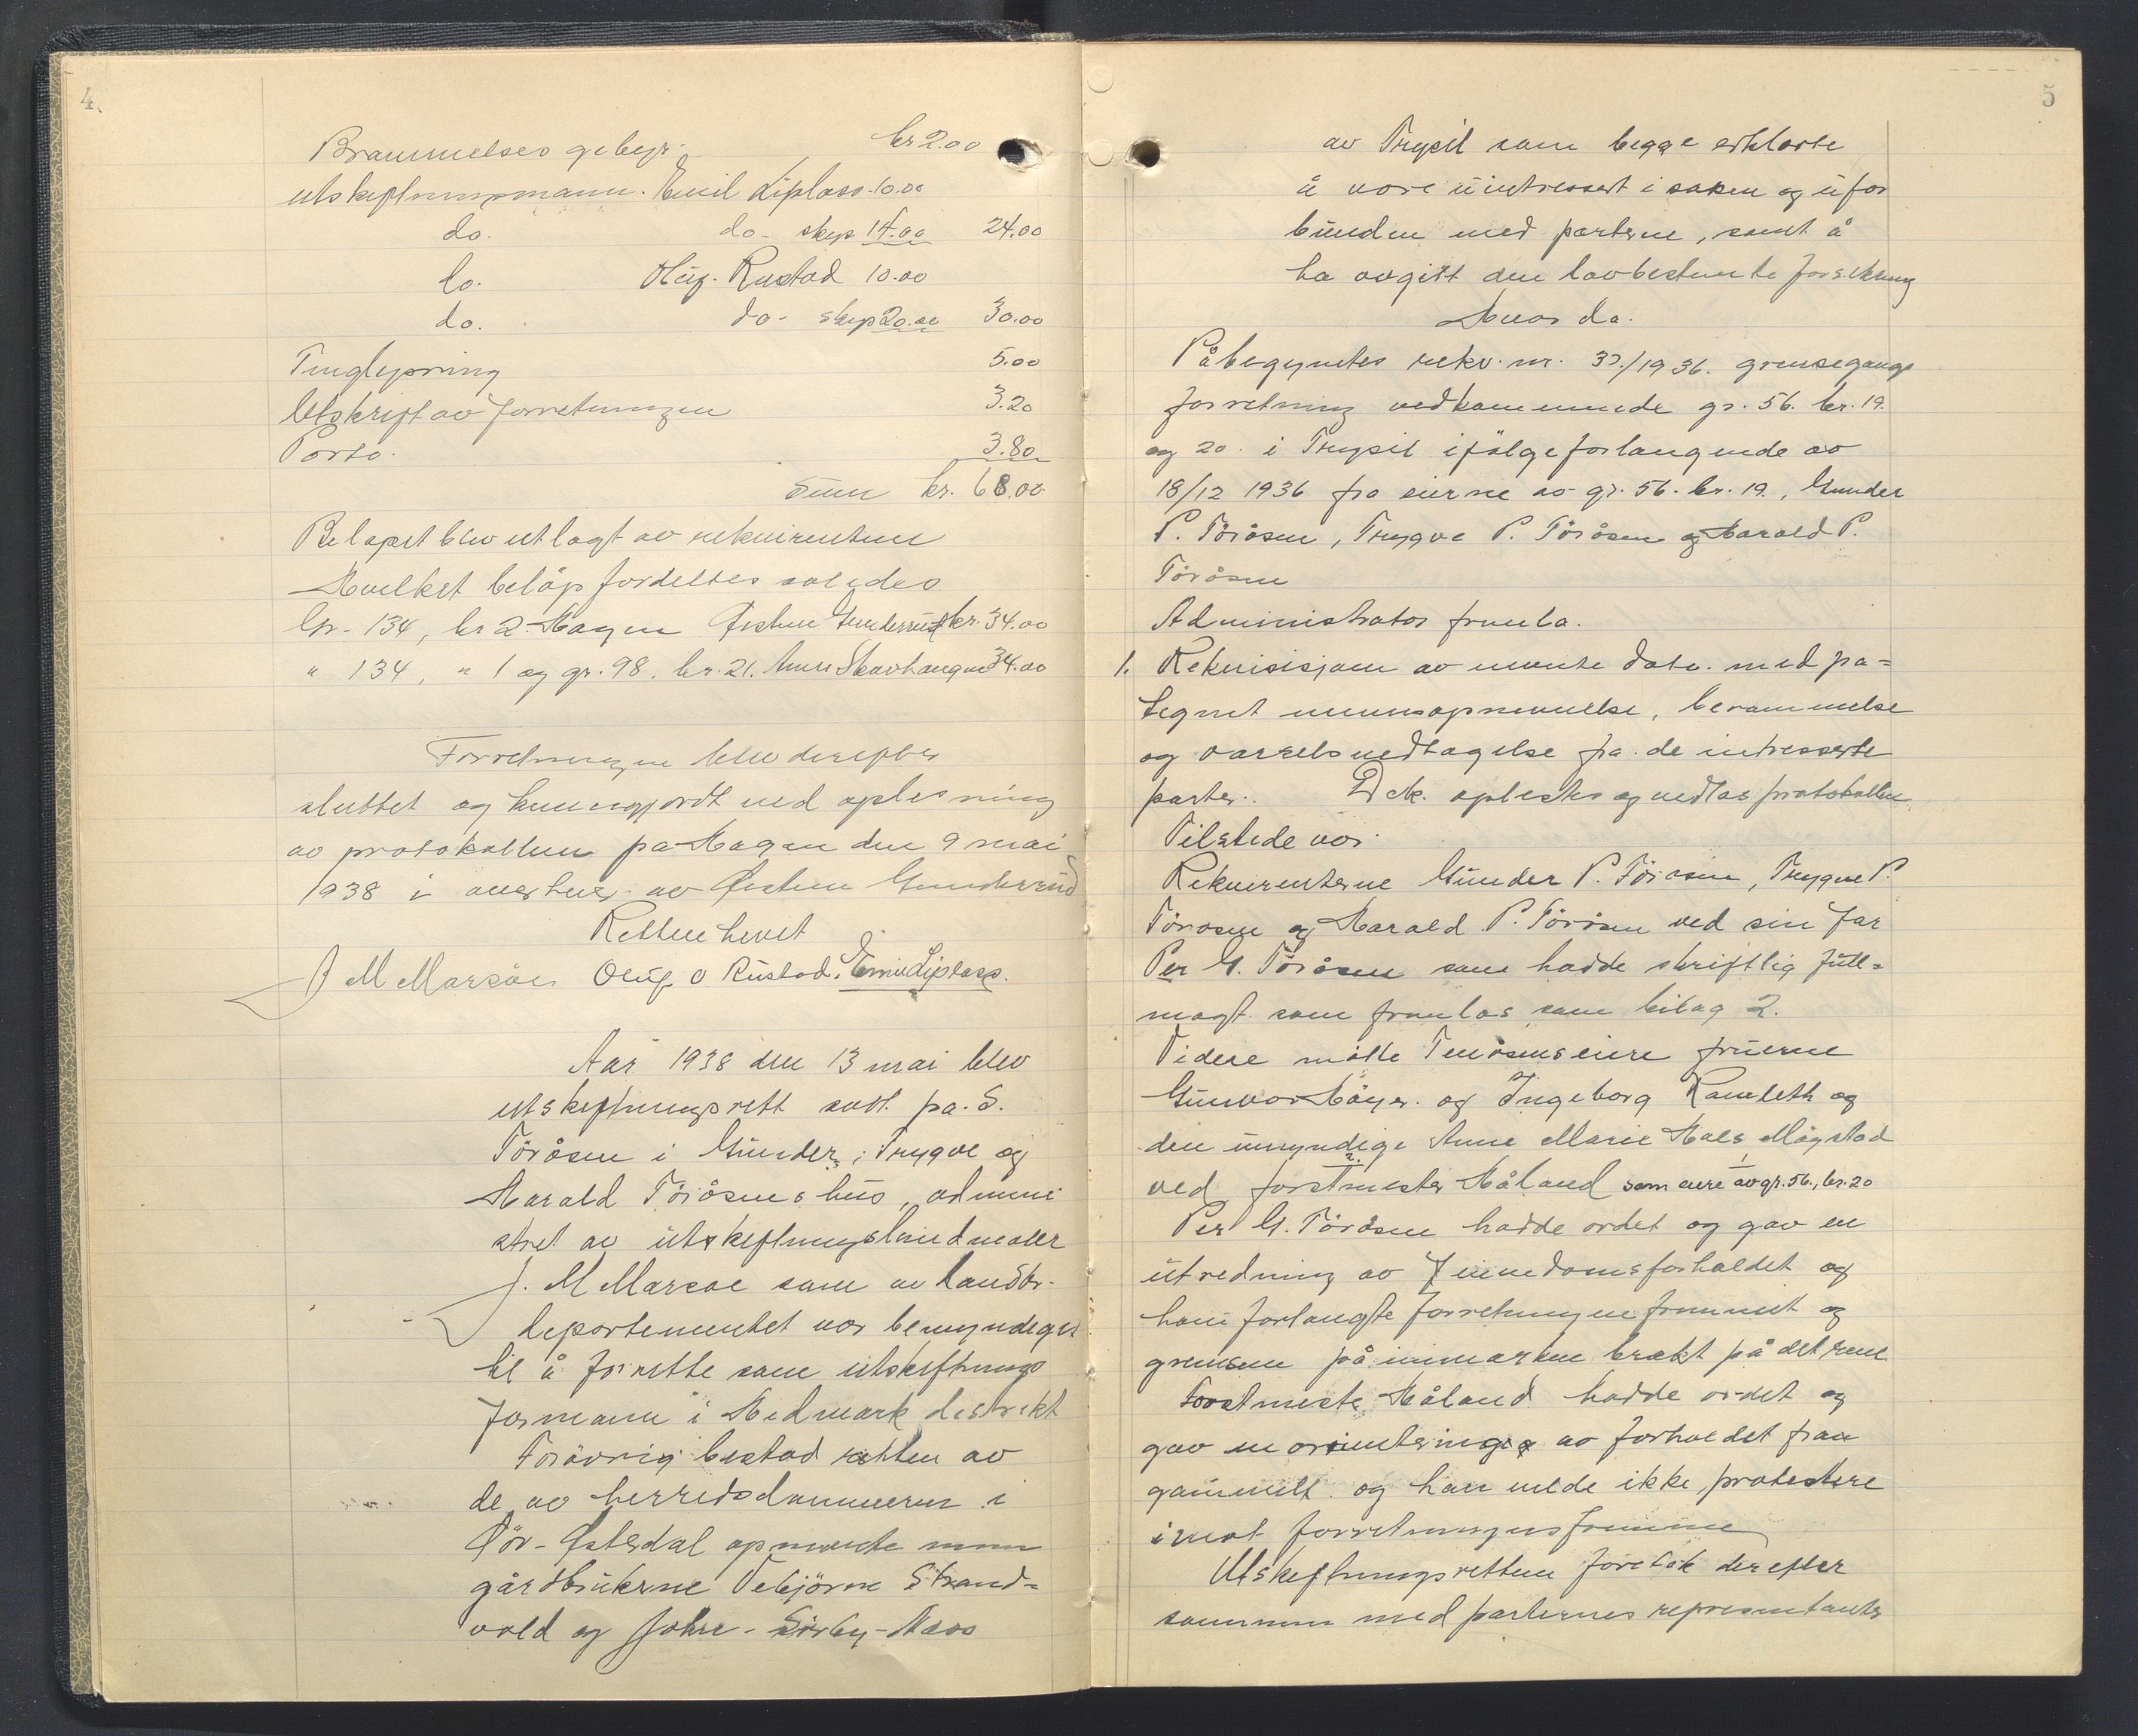 4
Brammelses gebyr. kr 2.00
utskiftningsmann. Emil Liplass. 10.00
do. do- skys 14.00 24.00
do. Oluf. Rustad 10.00
do. do- skys 20.00 30.00
Tinglysning 5.00
Utskrift av forretningen 3.20
Porto. 3.80
Sum kr. 68.00
Beløpet blev utlagt av rekvirenten
Hvilket beløp fordeltes således
Gr. 134, br 2. Hagen Øistein Gundersrud kr. 34.00
" 134, " 1 og gr. 98. br. 21. 34.00
Forretningen blev derefter
sluttet og kunngjordt ved oplesning
av protokollen på Hagen den 9 mai
1938 i overhver av Øistein Gundersrud
Retten hevet
J M Marsåe Oluf O Rustad. Emil Liplass.
Aar 1938 den 13 mai blev
utskiftningsrett satt på S.
Töråsen i Gunder, Trygve og
Harald Töråsens hus, admini
stret av utskiftningslandmåler
J. M Marsåe som av Landbr.
departementet var bemyndiget
til å forrette som utskiftnings
formann i Hedmark distrikt
Forövrig bestod retten av
de av herredsdommeren i
Sör-Østerdal opnevnte menn
gårdbrukerne Tebjörn Strand-
vold og Johre - Sörby - Moos
5
av Trysil som begge erklærte
å være uintressert i saken og ufor
bunden med parterne, samt å
ha avgitt den lovbestemte forsikring
Hvor da.
Påbegyntes rekv. nr. 37/1936. grensegangs
forretning vedkommende gr. 56. br. 19.
og 20. i Trysil ifölge forlangende av
18/12 1936 fra eierne av gr. 56. br. 19., Gunder
P. Töråsen, Trygve P. Töråsen og Harald P.
Töråsen
Administrator fremla.
1. Rekvisisjonen av nevnte dato. med på-
tegnet mennsopnevnelse, berammelse
og varselsvedtagelse fra de intresserte
parter. Dok. oplestes og vedlas protokollen
Tilstede var
Rekvirenterne Gunder P. Töråsen, Trygve P.
Töråsen og Harald P. Töråsen ved sin far
Per G. Töråsen som hadde skriftlig full-
magt som fremlas som bilag 2.
Videre mötte Tenåsens eiere fruerne
Gunvor Höyer. og Ingeborg Ramleth og
den umyndige Anne Marie Maes Mögstad
ved forstmester Håland som eiere av gr. 56., br. 20
Per G. Töråsen hadde ordet og gav en
utredning av Eiendomsforholdet og
han forlangte forretningen fremmet og
grensen på innmarken brakt på det rene
Forstmester Håland hadde ordet og
gav en orientering av forholdet fra
gammelt og han vilde ikke protestere
imot forretningens fremme
Utskiftningsretten foretok derefter
sammen med parternes representanter